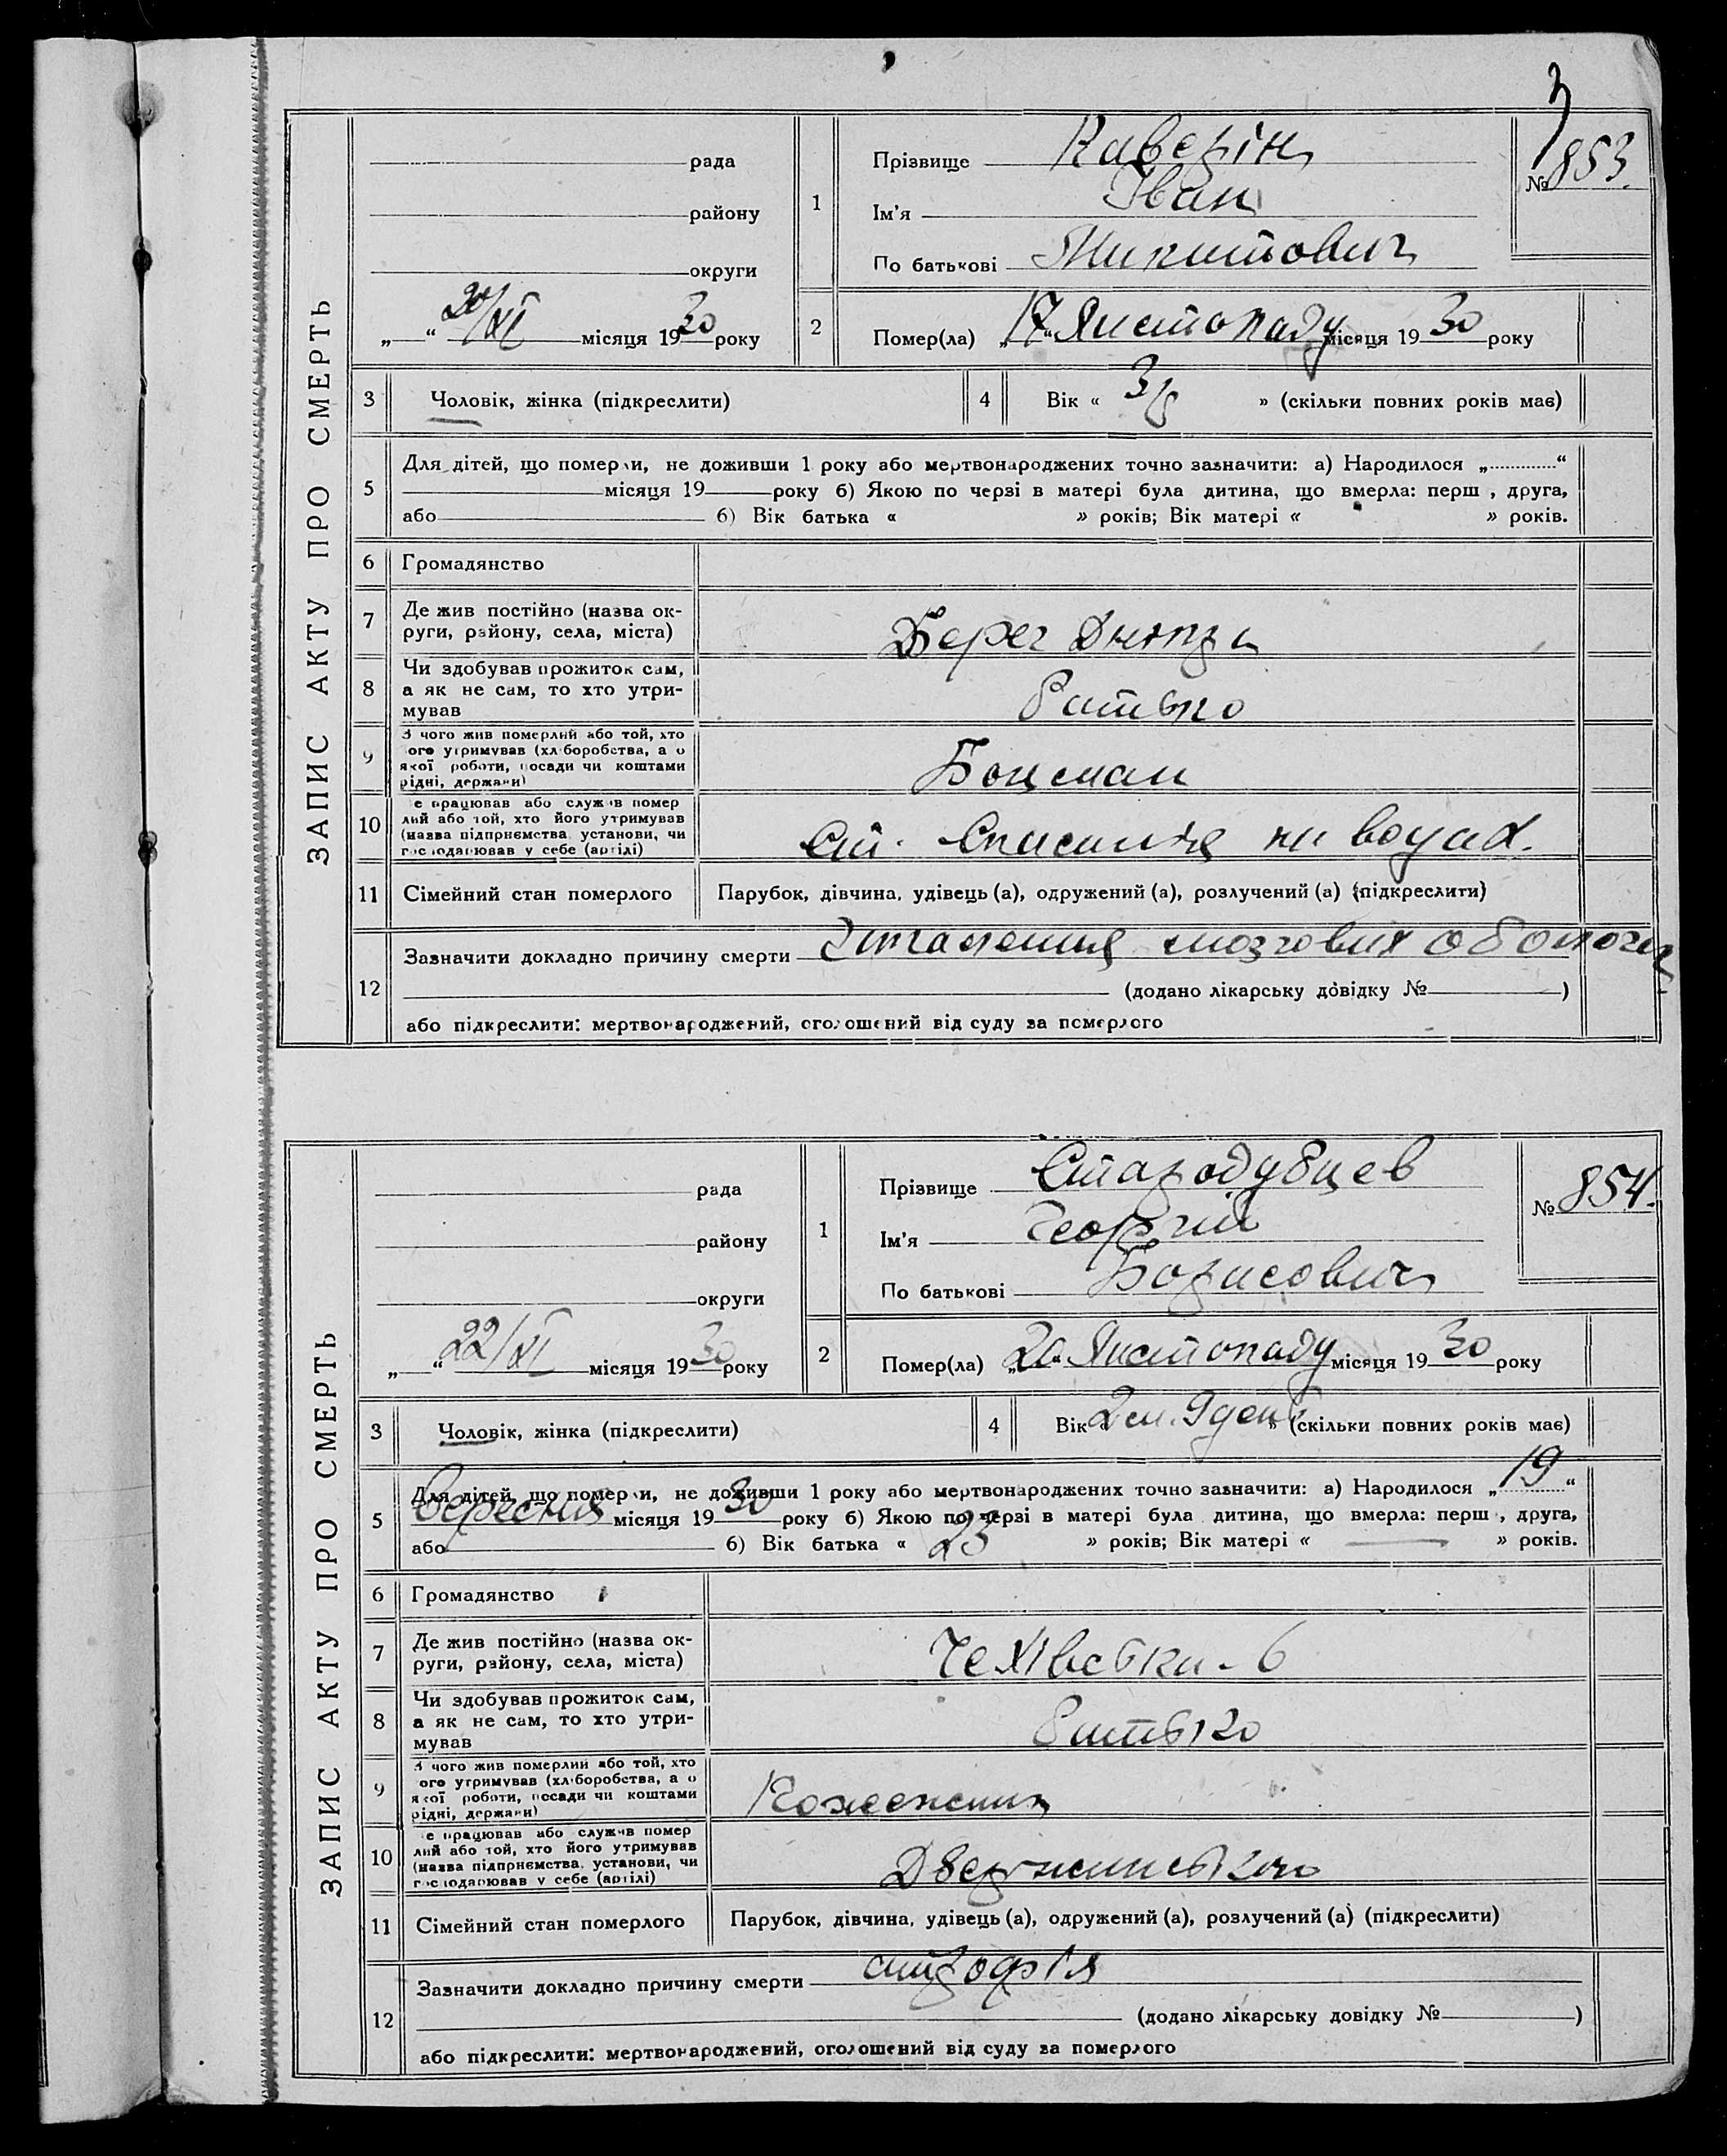 ЗАПИС АКТУ ПРО СМЕРТЬ
рада
району
округи
„ “ /XI місяця 1930 року
1
Прізвище Каверін
Ім'я Іван
По батькові Микитович
№ 853.
2
Помер(ла) „17“ Листопаду місяця 1930 року
3
Чоловік, жінка (підкреслити)
4
Вік « » (скільки повних років має)
5
Для дітей, що померли, не доживши 1 року або мертвонароджених точно зазначити: а) Народилося „ “
місяця 19 року б) Якою по черзі в матері була дитина, що вмерла: перш , друга,
або 6) Вік батька « » років; Вік матері « » років.
6
Громадянство
7
Де жив постійно (назва ок-
руги, району, села, міста)
Берег Дніпра
8
Чи здобував прожиток сам,
а як не сам, то хто утри-
мував
батько
9
З чого жив померлий або той, хто
ого утримував (хліборобства, а о
якої роботи, посади чи коштами
рідні, держави)
Боцман
10
е працював або служив помер
лий або той, хто його утримував
(назва підприємства, установи, чи
господарював у себе (артілі)
Ст. Спасання на водах.
11
Сімейний стан померлого
Парубок, дівчина, удівець (а), одружений (а), розлучений (а) (підкреслити)
12
Зазначити докладно причину смерти мозгових оболочек
(додано лікарську довідку № )
або підкреслити: мертвонароджений, оголошений від суду за померлого
ЗАПИС АКТУ ПРО СМЕРТЬ
рада
району
округи
„ “ 22/XI місяця 1930 року
1
Прізвище Стародубцев
Ім'я Георгій
По батькові Борисович
№ 854.
2
Помер(ла) „20“ Листопаду місяця 1930 року
3
Чоловік, жінка (підкреслити)
4
Вік « 2 м. 9 день » (скільки повних років має)
5
Для дітей, що померли, не доживши 1 року або мертвонароджених точно зазначити: а) Народилося „19“
вересня місяця 1930 року б) Якою по черзі в матері була дитина, що вмерла: перш , друга,
або 6) Вік батька « 23 » років; Вік матері « — » років.
6
Громадянство
7
Де жив постійно (назва ок-
руги, району, села, міста)
Чехівська - 6
8
Чи здобував прожиток сам,
а як не сам, то хто утри-
мував
батько
9
З чого жив померлий або той, хто
ого утримував (хліборобства, а о
якої роботи, посади чи коштами
рідні, держави)
10
е працював або служив помер
лий або той, хто його утримував
(назва підприємства, установи, чи
господарював у себе (артілі)
11
Сімейний стан померлого
Парубок, дівчина, удівець (а), одружений (а), розлучений (а) (підкреслити)
12
Зазначити докладно причину смерти атрофія
(додано лікарську довідку № )
або підкреслити: мертвонароджений, оголошений від суду за померлого